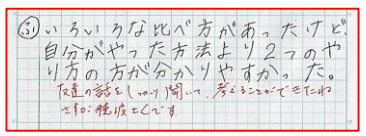 ㋫いろいろな比べ方があったけど、
自分がやった方法より2つのや
り方の方が分かりやすかった。
友達の話をしっかり聞いて、考えることができたね
さすが です。